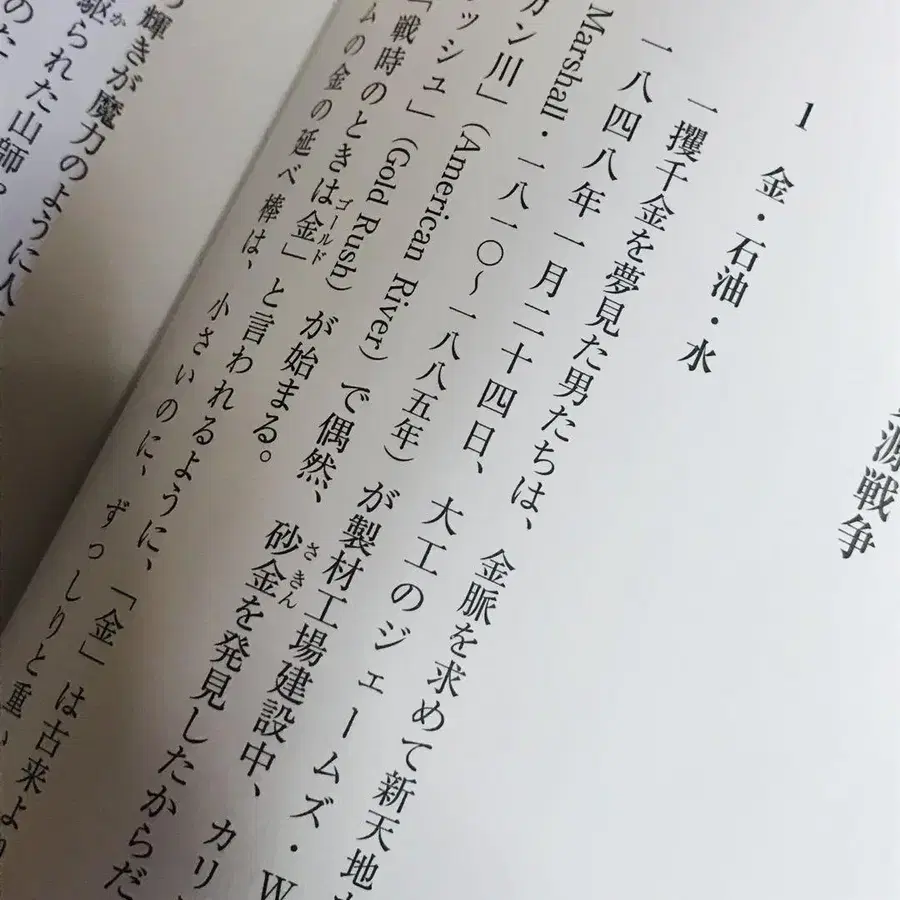 源戦争
1 金・石油・水
一攫千金を夢見た男たちは、金脈を求めて新天地
一八四八年一月二十四日、大工のジェームズ・W
Marshall・一八一〇～一八八五年）が製材工場建設中、カリ
カン川」（American River）で偶然、砂金を発見したからだ
ッシュ」（Gold Rush）が始まる。
「戦時のときは金」と言われるように、「金」は古来より
ムの金の延べ棒は、小さいのに、ずっしりと重い
輝きが魔力のように人
駆られた山師
のた